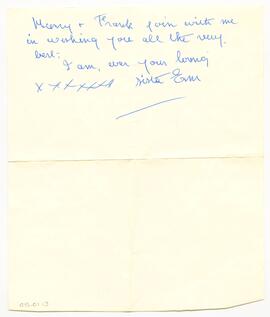 Merry & Frank join with me
in wishing you all the very
best:
I am, ever your loving
xxxxxxx sister Em